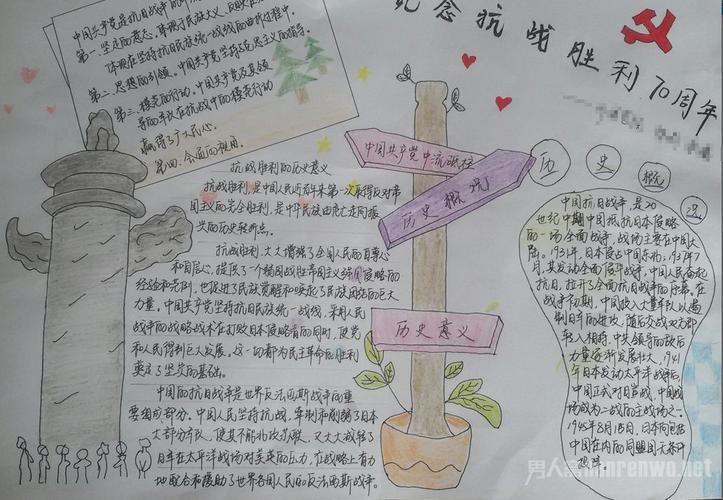 纪念抗战胜利70周年
第一、坚定的意志。体现了民族大义
体现在坚持抗日民族统一战线的曲折过程中。
第二、思想的引领。中国共产党坚持了马克思主义的指导。
第三、模范的行动。中国共产党及其领
导的军队在抗战中的模范行动
赢得了广大民心。
第四、全面的
中国共产党中流砥柱
历史概况
历史意义
抗战胜利的历史意义
抗战胜利,是中国人民近百年来第一次取得反对帝
国主义的完全胜利,是中华民族由危亡走向振
兴的历史转折点。
抗战胜利,大大增强了全国人民的自尊心
和自信心,提供了一个弱国战胜帝国主义强国侵略的
经验和范例,也促进了民族觉醒和唤起了民族团结的巨大
力量。中国共产党坚持抗日民族统一战线,采用人民
战争的战略战术在打败日本侵略者的同时,使党
和人民得到巨大发展。这一切都为民主革命的胜利
奠定了坚实的基础。
中国的抗日战争是世界反法西斯战争的重
要组成部分。中国人民坚持抗战,牵制和削弱了日本
大部分军队,使其不能北攻苏联,又大大减轻了
日军在太平洋战场对美英的压力,在战略上有力
地配合和援助了世界各国人民的反法西斯战争。
历史概况
中国抗日战争是20
世纪中期中国抵抗日本侵略
的一场全面战争,战场主要在中国大
陆。1931年,日本侵占中国东北;1937年7
月,其发动全面侵华战争,中国人民奋起
抗日,拉开了全面抗日战争的序幕。在
战争初期,中国投入大量军队以遏
制日军的进攻,随后交战双方都
转入相持,中共领导的敌后
力量逐渐发展壮大。1941
年日本发动太平洋战争后,
中国正式对日宣战,中国战
场成为二战的主战场之一。
1945年8月15日,日本向包括
中国在内的同盟国无条件
投降。
男人窝nanrenwo.net